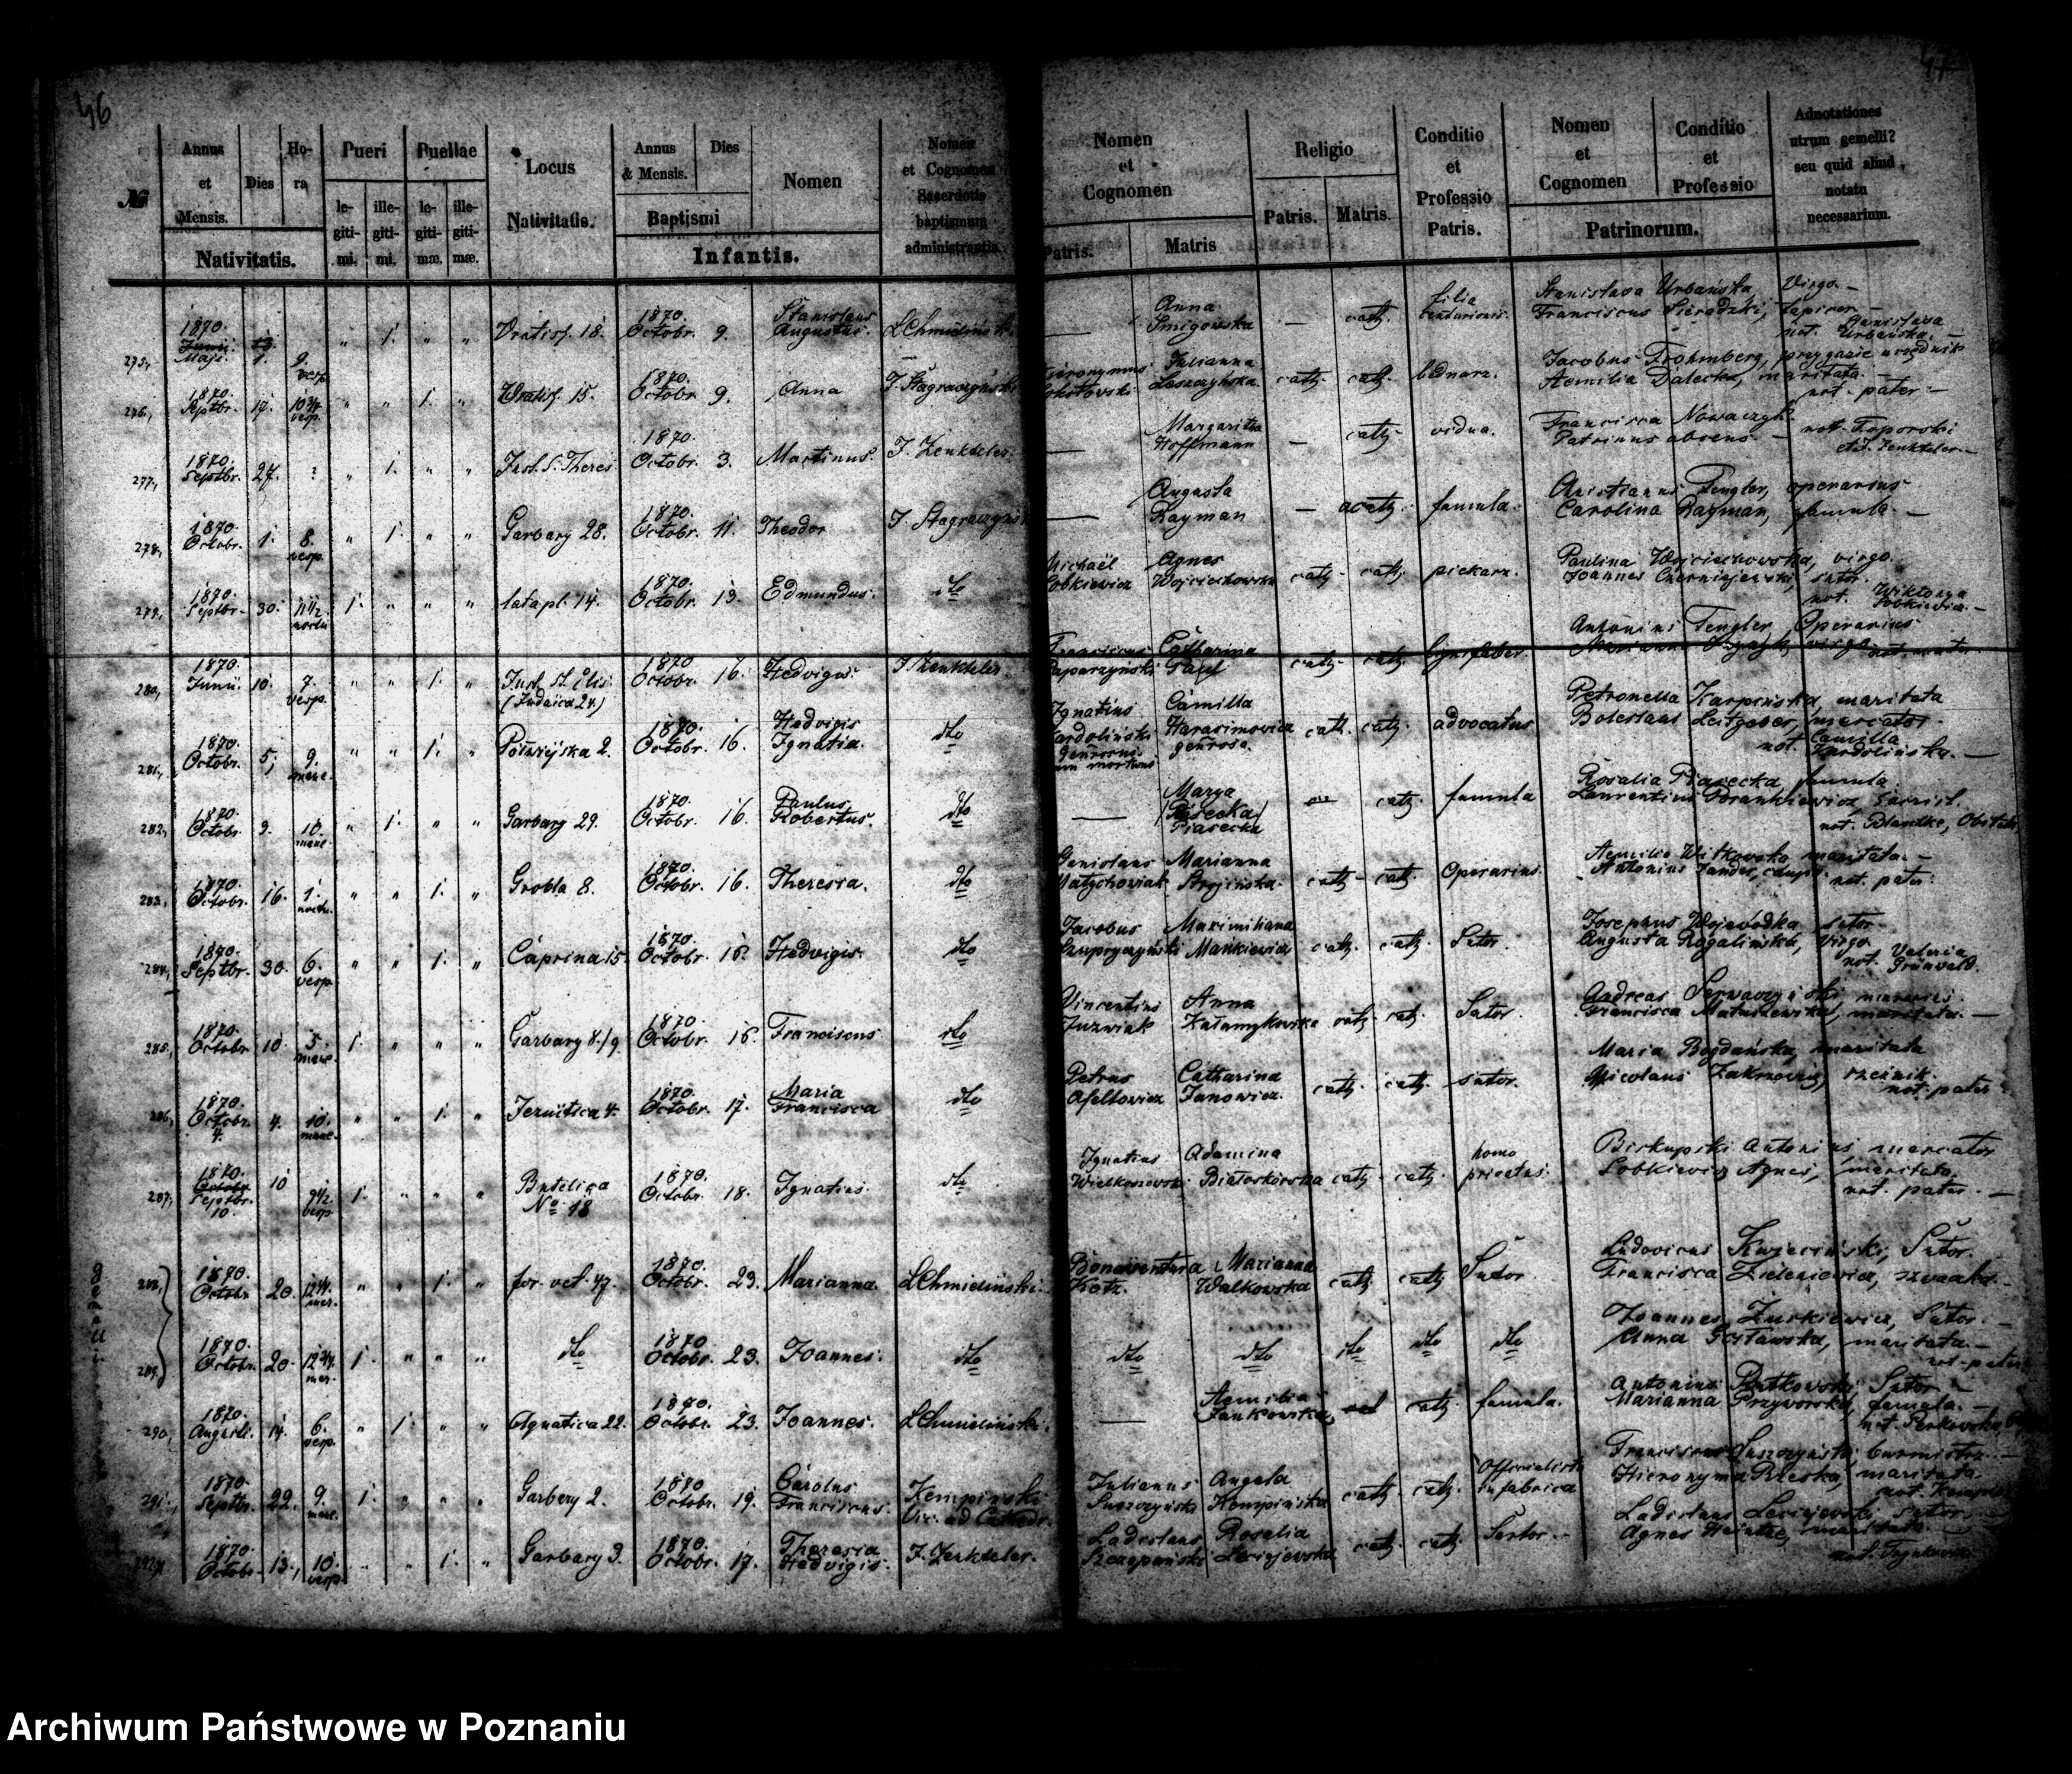 46
47
№
Annus et Mensis.
Dies
Ho-ra
Nativitatis.
Pueri
le-giti-mi.
ille-giti-mi.
Puellae
le-giti-mæ.
ille-giti-mæ.
Locus Nativitatis.
Annus & Mensis.
Dies
Baptismi
Nomen
Infantis.
Nomen et Cognomen Sacerdotis baptismum administrantis
Nomen et Cognomen
Patris.
Matris
Religio
Patris.
Matris.
Conditio et Professio Patris.
Nomen et Cognomen
Conditio et Professio
Patrinorum.
Adnotationes utrum gemelli? seu quid aliud notatu necessarium.
275, 1870. Maji. 1. 9. vesp. " 1. " " Vratisl. 18. 1870. Octobr. 9. Stanislaus Augustus. LChmieliński.
— Anna Smigowska — cath. filia centurionis. Stanislava Urbańska, Virgo. —
Franciscus Sieradzki, tapicer —
not. Stanislava Urbańska. —
276, 1870. Septbr. 17. 10 3/4 vesp. " " 1. " Vratisl. 15. 1870. Octobr. 9. Anna J. Stagraczyński
Hieronymus Sokołowski Julianna Leszczyńska. cath. cath. bednarz. Jacobus Frohmberg, przy gazie urzędnik
Aemilia Dalecka, maritata. —
not. pater. —
277, 1870. Septbr. 27. ? " 1. " " Inst. S. Theres. 1870. Octobr. 3. Martinus. J. Zenkteler.
— Margaritha Hoffmann — cath. vidua. Francisca Nowaczyk
Patrinus absens — not. Toporski
278, 1870. Octobr. 1. 8. vesp. " 1. " " Garbary 28. 1870. Octobr. 11. Theodor J. Stagraczyński
— Augusta Rayman — acath. famula. Christianus Tengler, operarius
Carolina Rayman, famula. —
279, 1870. Septbr. 30. 11 1/2 noctu 1. " " " lata pl. 14. 1870. Octobr. 13. Edmundus. dto
Michaël Sobkiewicz Agnes Wojciechowska cath. cath. piekarz. Paulina Wojciechowska, virgo.
Joannes Czerniejewski, sutor.
not. Wiktorya Sobkiewicz. —
280, 1870. Junii. 10. 7. vesp. " " 1. " Inst. St. Elis. (Judaica 24.) 1870 Octobr. 16. Hedvigis. J Zenkteler.
Franciscus Catharina cath. cath. lignifaber Antonius Tengler, Operarius
Marianna virgo. not. mater.
281, 1870. Octobr. 5; 9. mane. " " 1. " Półwiejska 2. 1870. Octobr. 16. Hedvigis Ignatia. dto
Ignatius Kardoliński Camilla Harasimowicz generosa. cath. cath. advocatus Petronella Karpińska, maritata
Boleslaus Leitgeber, mercator.
not. Camilla Kardolińska. —
282, 1870. Octobr. 9. 10. mane. " 1. " " Garbary 29. 1870. Octobr. 16. Paulus Robertus. dto
— Marya Piasecka — cath. famula Rosalia Piasecka famula
Laurentius
283, 1870. Octobr. 16. 1. noctu. " " 1. " Grobla 8. 1870. Octobr. 16. Theresia. dto
Stanislaus Matychowiak Marianna Strojińska. cath. cath. Operarius. Aemilia Witkowska maritata. —
Antonius not. pater.
284, 1870. Septbr. 30. 6. vesp. " " 1. " Caprina 15. 1870. Octobr. 16. Hedvigis. dto
Jacobus Maximiliana Mańkiewicz cath. cath. Sutor. Josephus Wojewódka sutor.
Augusta Rogalińska, Virgo
not. Valeria Grünwald.
285, 1870. Octobr. 10. 5. mane. 1. " " " Garbary 8./9. 1870. Octobr. 16. Franciscus dto
Vincentius Juzwiak Anna Kałamykowska cath. cath. Sutor. Andreas
Francisca Matuszewska, maritata. —
286, 1870. Octobr. 4. 4. 10. mane. " " 1. " Jezuitica 4. 1870. Octobr. 17. Maria Francisca dto
Petrus Afeltowicz Catharina Janowicz. cath. cath. sutor. Maria Bogdańska, maritata
Nicolaus rzeźnik.
not. pater.
287, 1870. Septbr. 10. 10 9 1/2 vesp. 1. " " " Butelica No 18 1870. Octobr. 18. Ignatius. dto
Ignatius Wielkoszewski Adamina Białoskórska cath. cath. homo privatus. Biskupski Antonius, mercator
Sobkiewicz Agnes, maritata.
not. pater. —
gemelli.
288, 1870. Octobr. 20. 12 1/4. mer. " " 1. " for. vet. 47. 1870. Octobr. 23. Marianna. LChmieliński.
Bonaventura Kotz. Marianna Walkowska cath. cath. Sutor. Ludovicus Kwieciński, Sutor.
Francisca Zieleniewicz, szwaczka. —
289. 1870. Octobr. 20. 12 3/4. mer. 1. " " " dto 1870 Octobr. 23. Joannes. dto
dto dto dto dto dto Joannes Żurkiewicz, Sutor. —
Anna Gostawska, maritata. —
not. pater.
290, 1870. Augusti. 14. 6. vesp. " 1. " " Aquatica 22. 1870. Octobr. 23. Joannes. LChmieliński.
— Aemilia Jankowska, cath. famula. Antonius Rutkowski, Sutor —
Marianna Przyborska, famula. —
291, 1870. Septbr. 22. 9. mane. 1. " " " Garbary 2. 1870 Octobr. 19. Carolus Franciscus. Kempiński Vic. ad Cathedr.
Julianus Suszczyński Angela Kempińska cath. cath. Officialista in fabrica Franciscus Suszczyński, burmistrz. —
Hieronyma maritata.
292, 1870. Octobr. 13. 10. vesp. " " 1. " Garbary 3. 1870. Octobr. 17. Theresia Hedvigis. J. Zenkteler.
Ladislaus Szczepański Rosalia Lesiejewska cath. cath. Sartor. — Ladislaus Lesiejewski, sutor.
Agnes Heintze, maritata
Archiwum Państwowe w Poznaniu